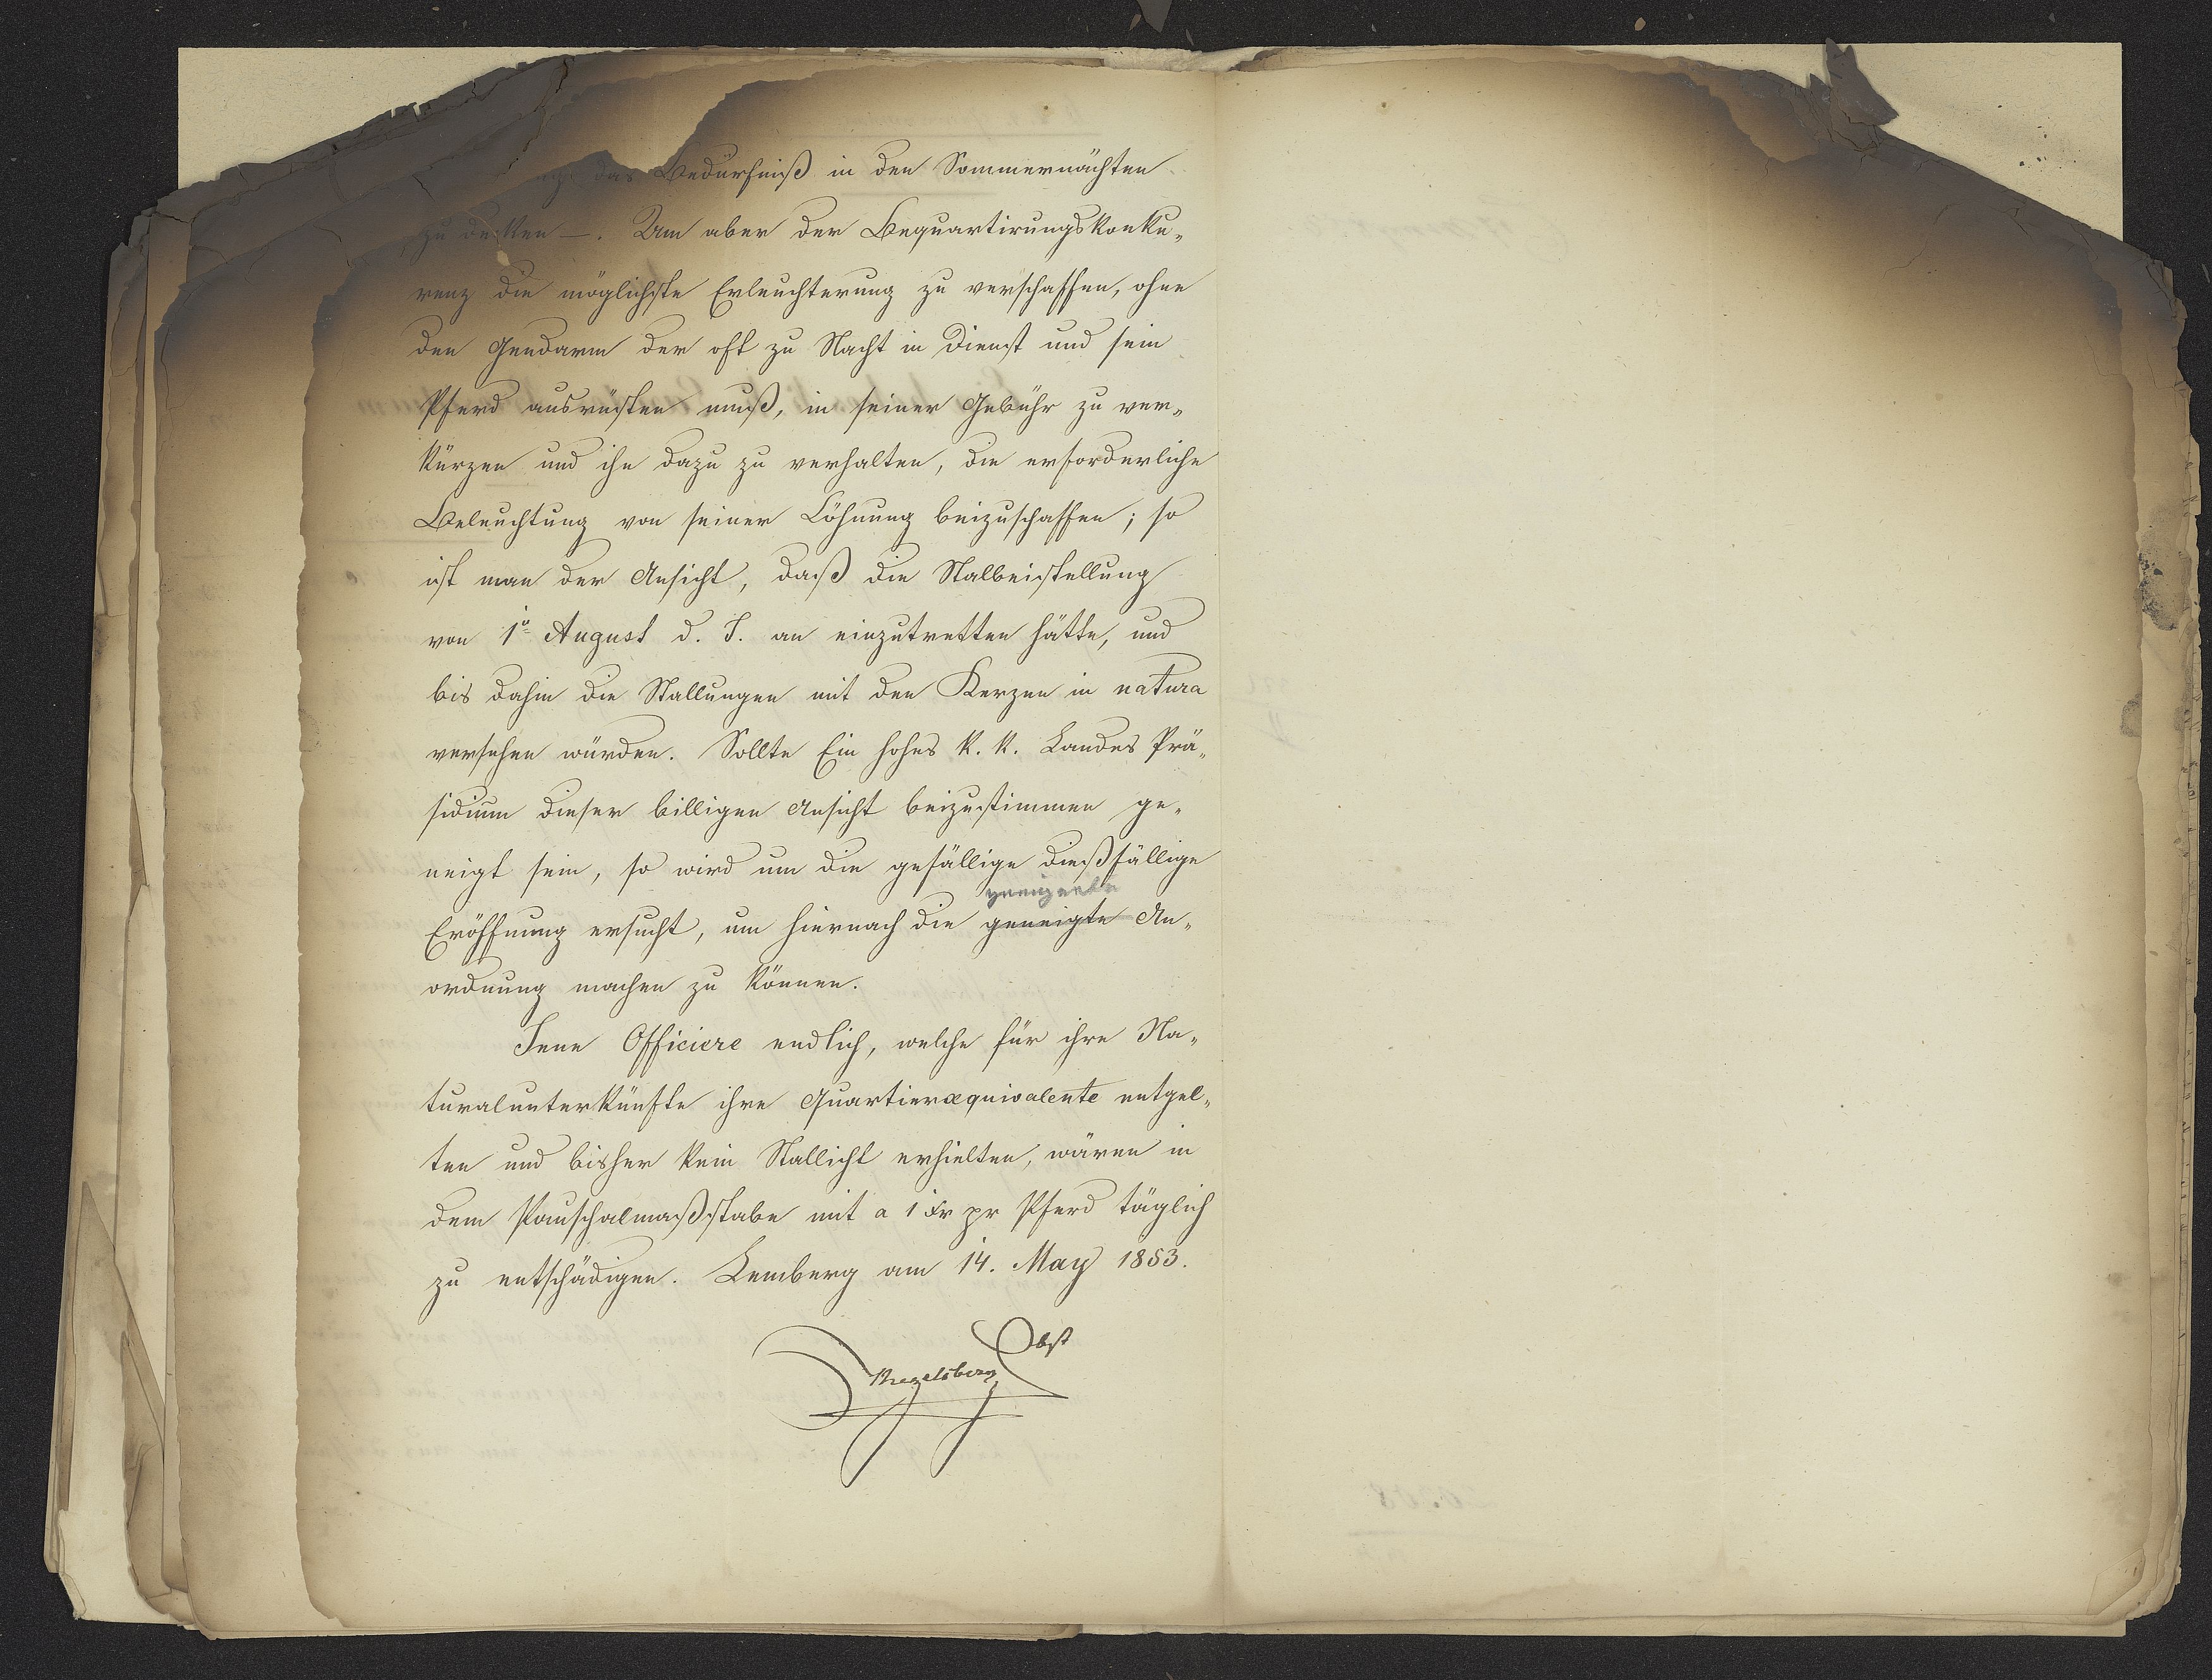 das Bedürfniß in den Sommernächten
zu decken —. Um aber der Bequartirungskonku-
renz die möglichste Erleuchterung zu verschaffen, ohne
den Gendarm der oft zu Nacht in Dienst und sein
Pferd ausrüsten muß, in seiner Gebühr zu ver-
kürzen und ihn dazu zu verhalten, die erforderliche
Beleuchtung von seiner Löhnung beizuschaffen; so
ist man der Ansicht, daß die Stalbeistellung
von 1o August d. J. an einzutretten hätte, und
bis dahin die Stallungen mit den Kerzen in natura
versehen würden. Sollte Ein hohes k. k. Landes Prä-
sidium dieser billigen Ansicht beizustimmen ge-
neigt sein, so wird um die gefällige dießfällige
geeignete
Eröffnung ersucht, um hiernach die geneigte An-
ordnung machen zu können.
Jene Officiere endlich, welche für ihre Na-
turalunterkünfte ihre Quartieræquivalente entgel-
ten und bisher kein Stallicht erhielten, wären in
dem Pauschalmaßstabe mit a 1 xr pr Pferd täglich
zu entschädigen. Lemberg am 14. May 1853.
Obst